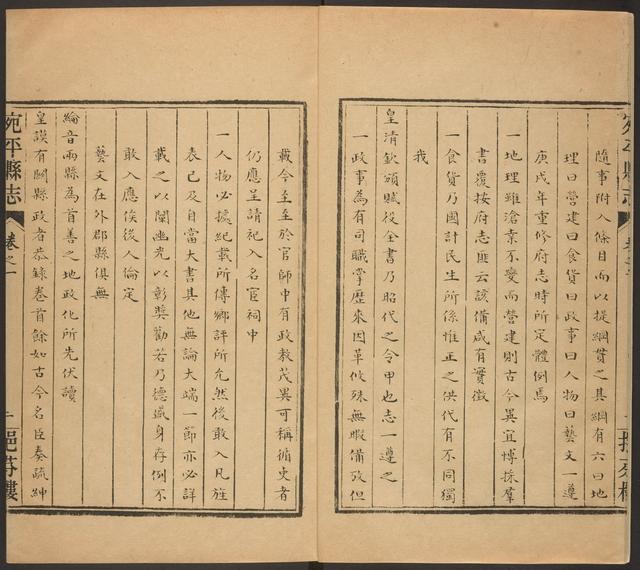 隨事附入條目而以提綱貫之其綱有六曰地
理曰營建曰食貨曰政事曰人物曰藝文一遵
庚戌年重修府志時所定體例焉
一地理雖滄桑不變而營建則古今異宜博採羣
書覆按府志匪云該備咸有實徵
一食貨乃國計民生所係惟正之供代有不同獨
我
皇清欽頒賦役全書乃昭代之令甲也志一遵之
一政事為有司職掌歷來因革攸殊無暇備攷但
載今至至於官師中有政教茂異可稱循吏者
仍應呈請祀入名宦祠中
一人物必據紀載所傳鄉評所允然後敢入凡旌
表已及自當大書其他無論大端一節亦必詳
載之以闡幽光以彰獎勸若乃德盛身存例不
敢入應俟後人論定
藝文在外郡縣俱無
綸音兩縣為首善之地政化所先伏讀
皇謨有關縣政者恭錄卷首餘如古今名臣奏疏紳
宛平縣志
卷之一